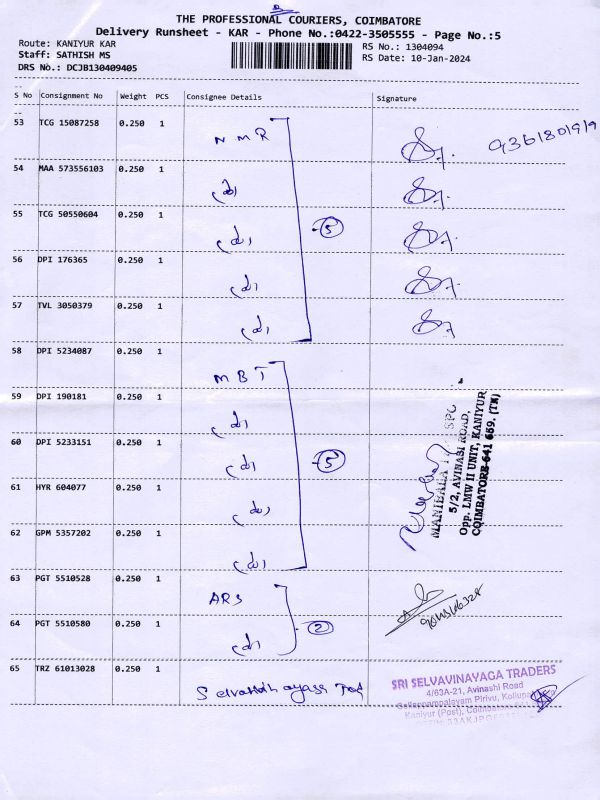 THE PROFESSIONAL COURIERS, COIMBATORE
Delivery Runsheet - KAR - Phone No.:0422-3505555 - Page No.:5
Route: KANIYUR KAR
RS No.: 1304094
Staff: SATHISH MS
RS Date: 10-Jan-2024
DRS No.: DCJB130409405
S No Consignment No Weight PCS Consignee Details Signature
53 TCG 15087258 0.250 1 NMR
54 MAA 573556103 0.250 1
55 TCG 50550604 0.250 1 5
56 DPI 176365 0.250 1
57 TVL 3050379 0.250 1
58 DPI 5234087 0.250 1 MBT
59 DPI 190181 0.250 1
60 DPI 5233151 0.250 1 5
61 HYR 604077 0.250 1
62 GPM 5357202 0.250 1
63 PGT 5510528 0.250 1 ARS
64 PGT 5510580 0.250 1 2
65 TRZ 61013028 0.250 1
MANIBALA
5/2, AVINASI ROAD,
Opp. LMW II UNIT, KANIYUR
COIMBATORE-641 659. (TN)
SRI SELVAVINAYAGA TRADERS
4/63A-21, Avinashi Road
Pirivu,
Kaniyur (Post),